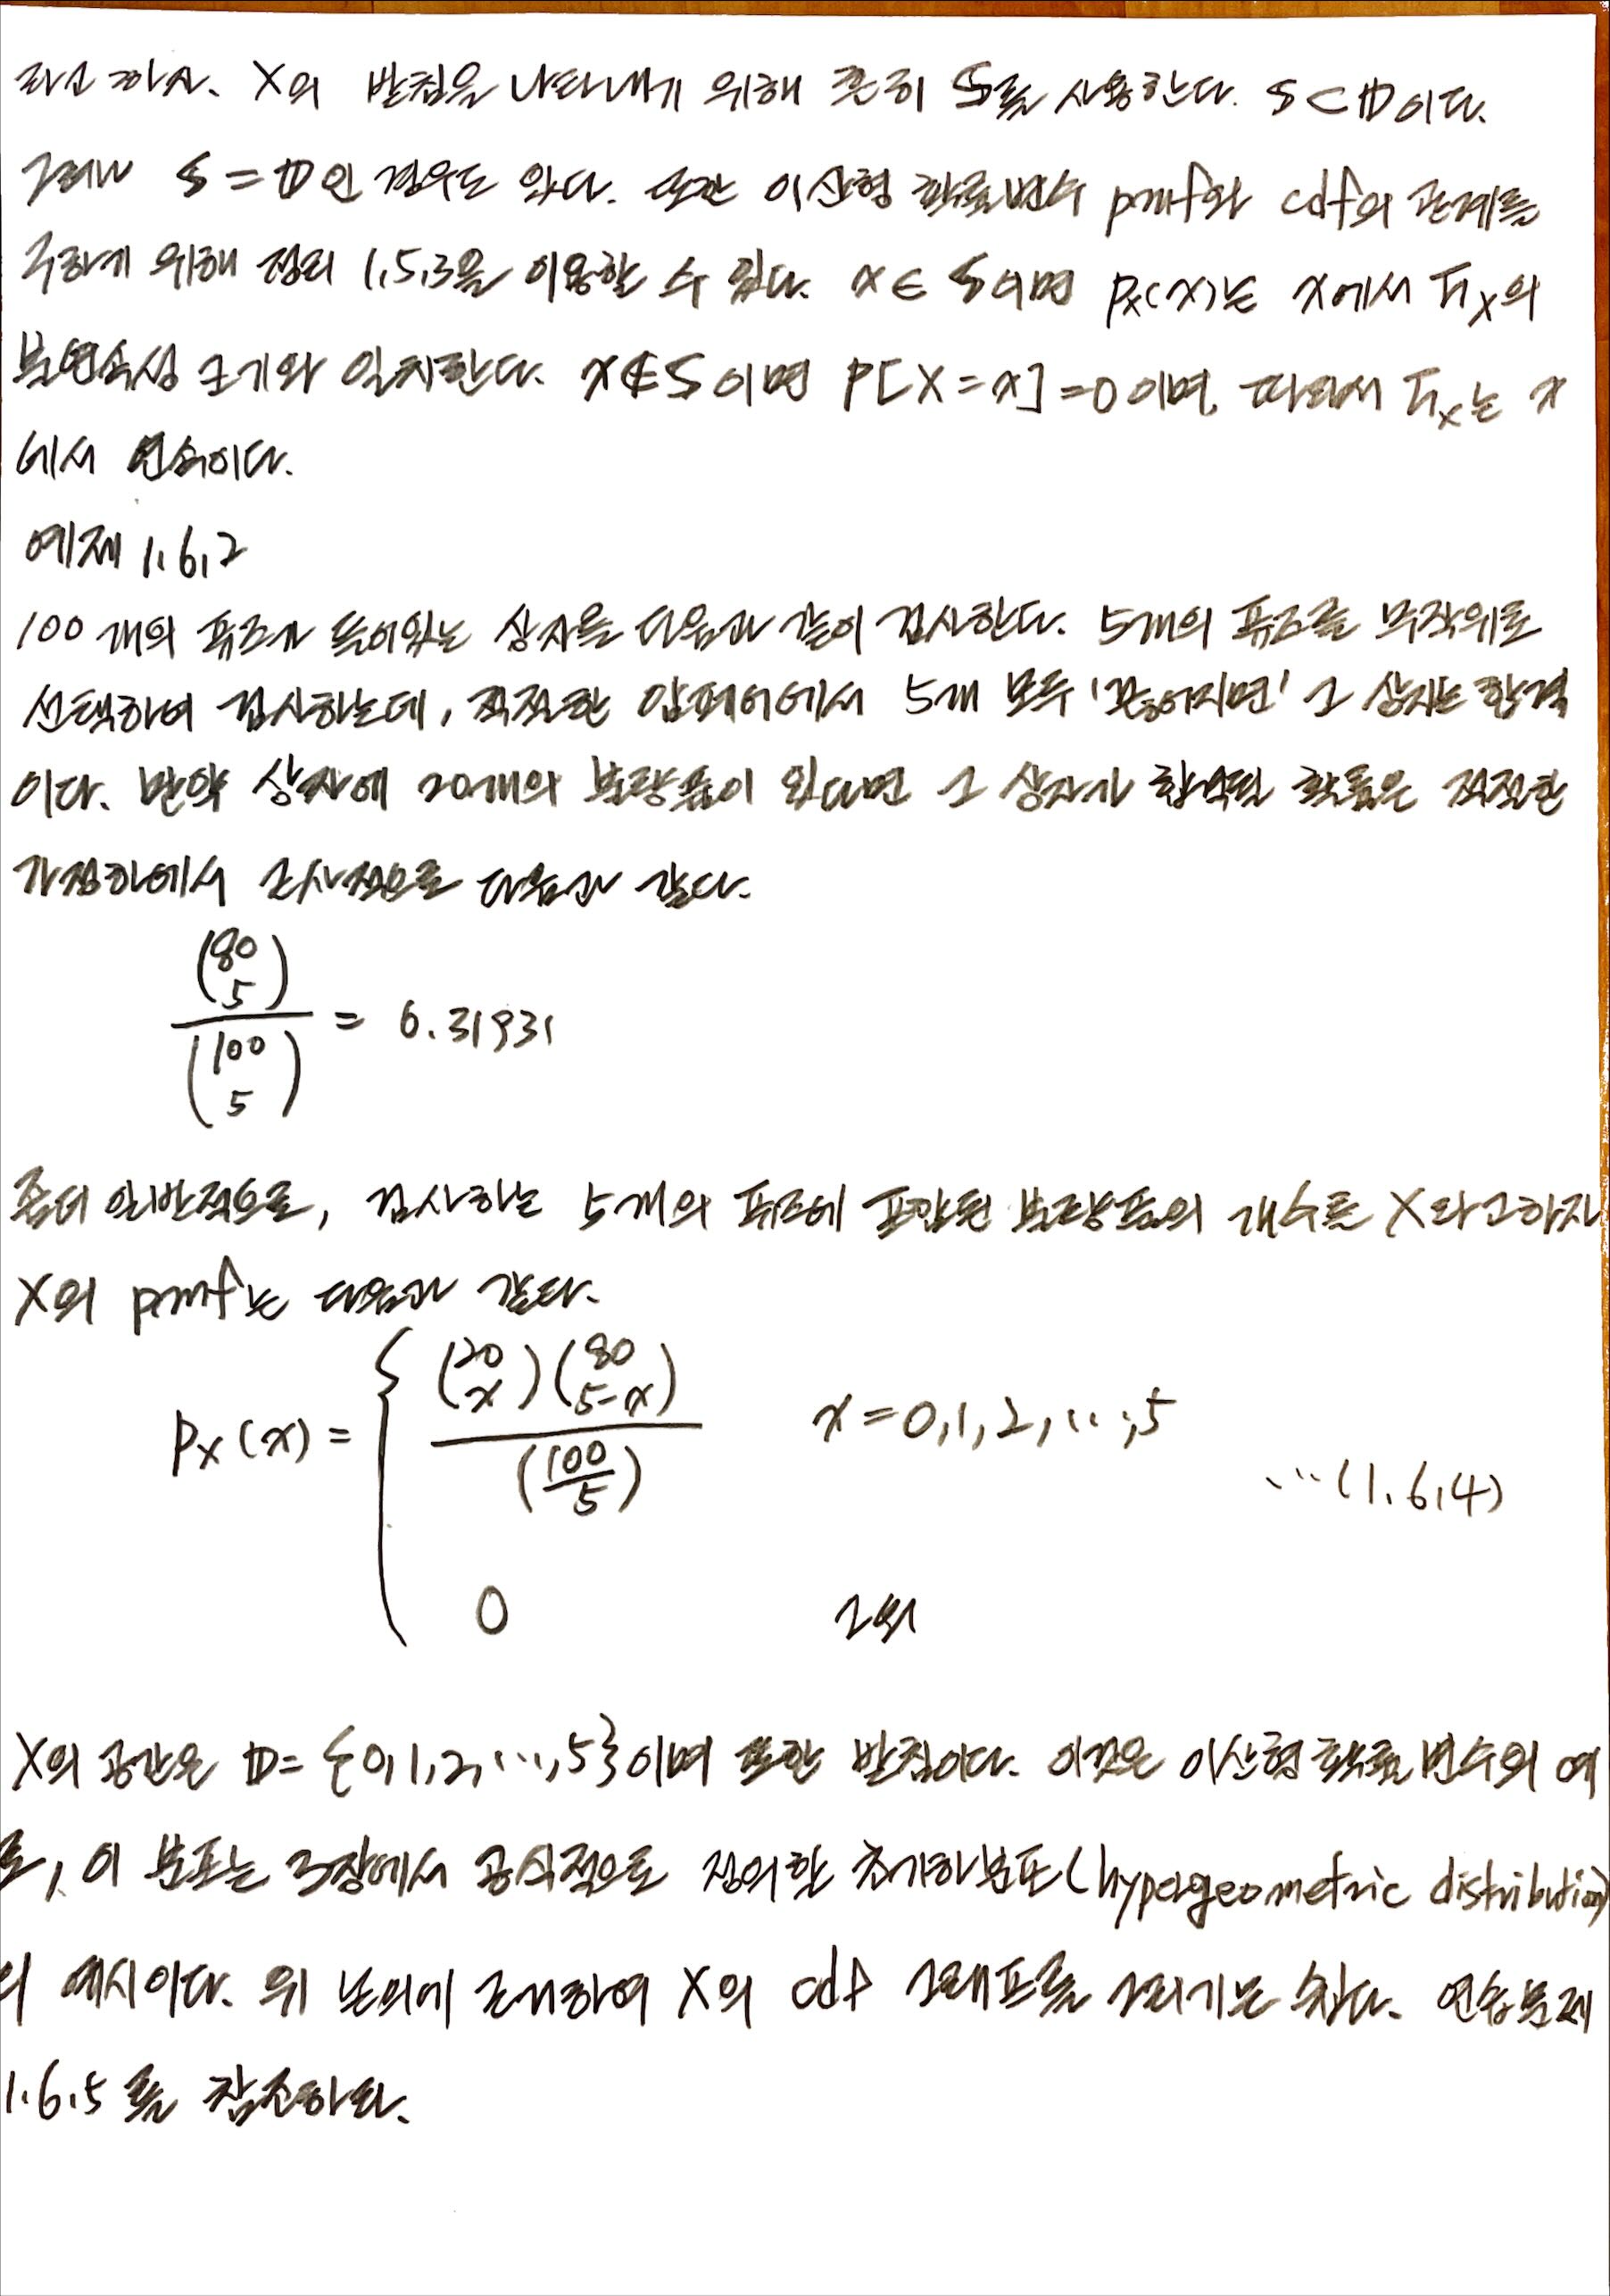 라고 하자. X의 받침을 나타내기 위해 흔히 S를 사용한다. S⊂D이다.
그러나 S=D인 경우도 있다. 또한 이산형 확률변수 pmf와 cdf의 관계를
구하기 위해 정리 1.5.3을 이용할 수 있다. x∈S이면 Px(x)는 x에서 Fx의
불연속성 크기와 일치한다. x∉S이면 P[X=x]=0이며, 따라서 Fx는 x
에서 연속이다.
예제 1.6.2
100개의 퓨즈가 들어있는 상자를 다음과 같이 검사한다. 5개의 퓨즈를 무작위로
선택하여 검사하는데, 적적한 암페어에서 5개 모두 '끊어지면' 그 상자는 합격
이다. 만약 상자에 20개의 불량품이 있다면 그 상자가 합격될 확률은 적절한
가정하에서 근사적으로 다음과 같다.
(80 5) / (100 5) = 0.31931
좀더 일반적으로, 검사하는 5개의 퓨즈에 포함된 불량품의 개수를 X라고하자
X의 pmf는 다음과 같다.
Px(x) = { (20 x)(80 5-x) / (100/5) x=0,1,2,...,5
...(1.6.4)
0 그외
X의 공간은 D={0,1,2,...,5}이며 또한 받침이다. 이것은 이산형 확률변수의 예
로, 이 분포는 3장에서 공식적으로 정의할 초기하분포(hypergeometric distribution)
의 예시이다. 위 논의에 근거하여 X의 cdf 그래프를 그리기는 쉽다. 연습문제
1.6.5를 참조하라.